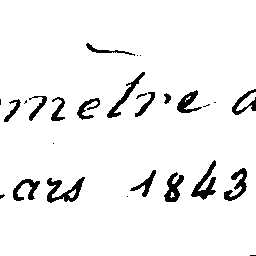 mètre d
ars 1843